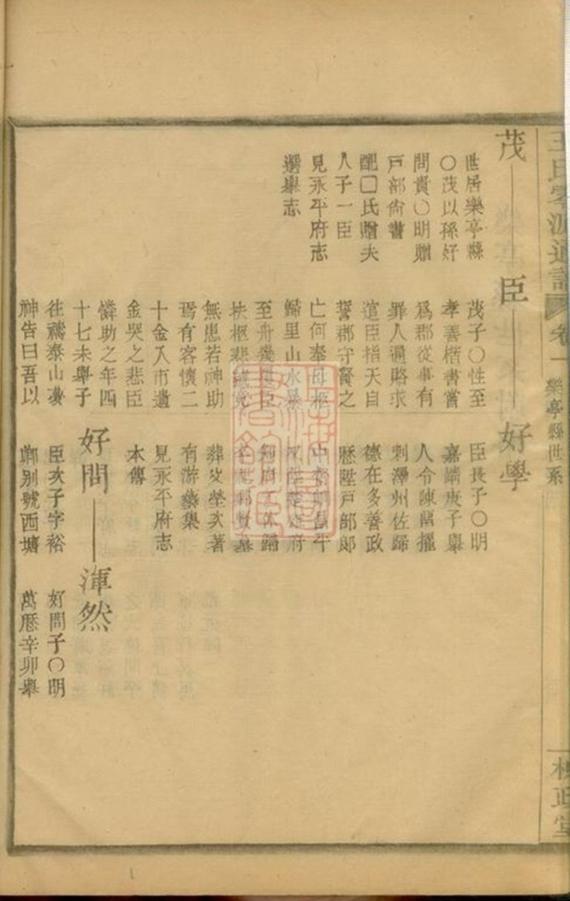 茂
世居樂亭縣
○茂以孫好
問貴○明贈
戶部尙書
配□氏贈夫
人子一臣
見永平府志
選舉志
臣
茂子○性至
孝善楷書嘗
爲郡從事有
罪人逼賂求
道臣指天自
誓郡守賢之
亡何奉母柩
歸里山水暴
至舟幾臣
扶柩悲
無恙若神助
焉有客懷二
十金入市遺
金哭之悲臣
憐助之年四
十七未舉子
往禱泰山
神告曰吾以
好學
臣長子○明
嘉靖庚子舉
人令陳留擢
刺澤州佐歸
德在多善政
歷陞戶部郞
中
府
歸
葬父塋次著
有游藝集
見永平府志
本傳
好問
臣次子字裕
卿别號西塘
渾然
好問子○明
萬曆辛卯舉
王氏
通譜
卷一
樂亭縣世系
槐政堂